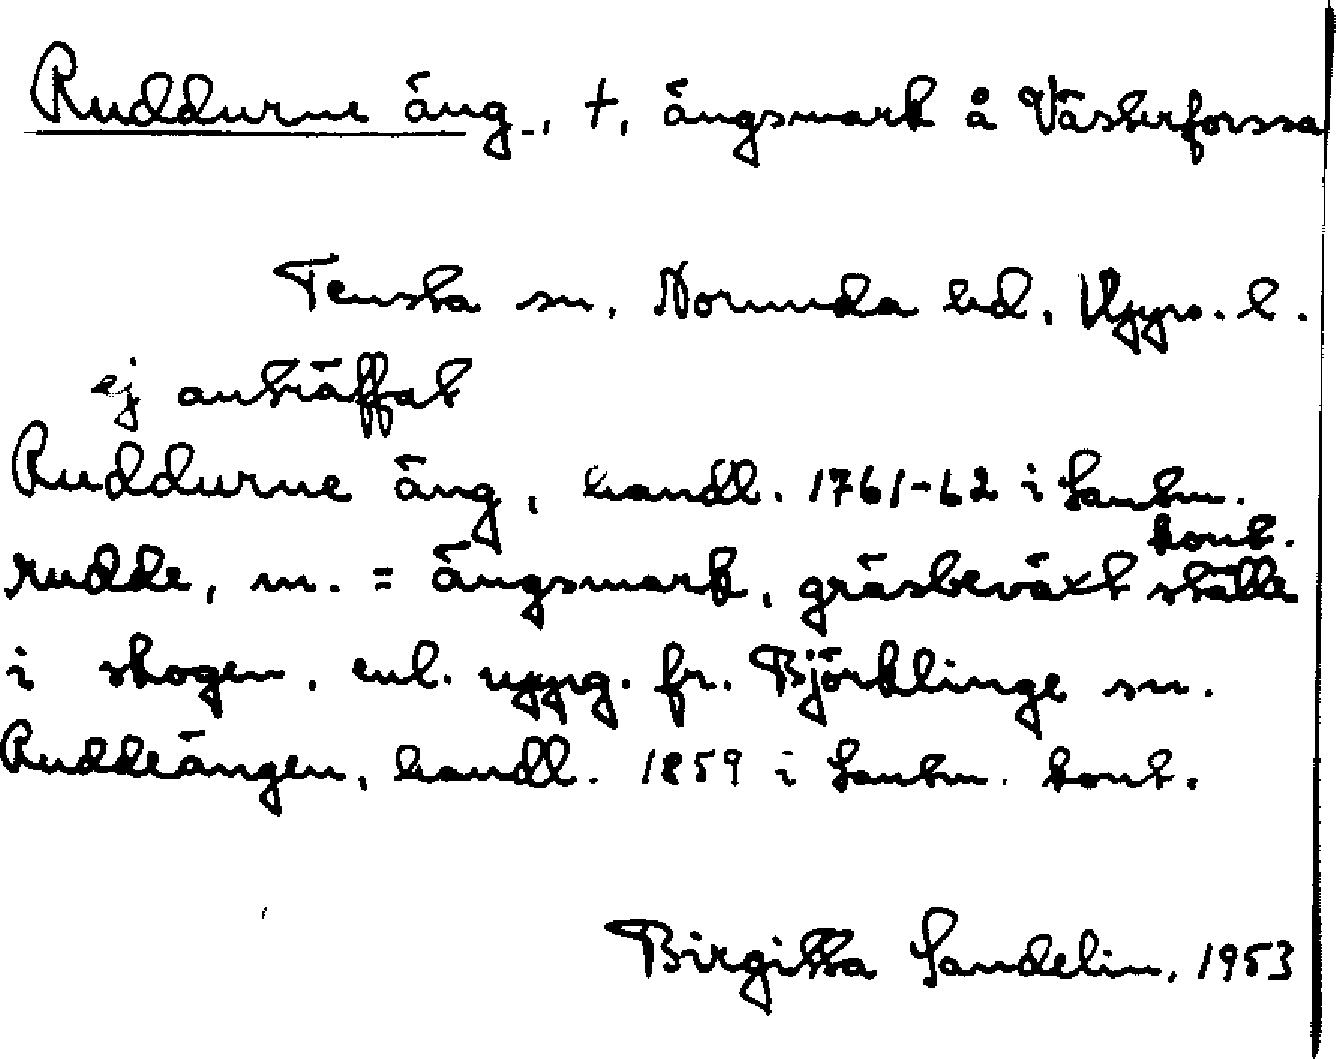 Ruddurne äng, †, ängsmark å Västerforssa
Tensta sn, Norunda hd, Upps. l.
ej anträffat
Ruddurne äng, handl. 1761-62 i Lantm.
kont.
rudde, m. = ängsmark, gräsbeväxt ställe
i skogen, enl. uppg. fr. Björklinge sn.
Ruddeängen, handl. 1859 i Lantm. kont.
Birgitta Sandelin, 1953